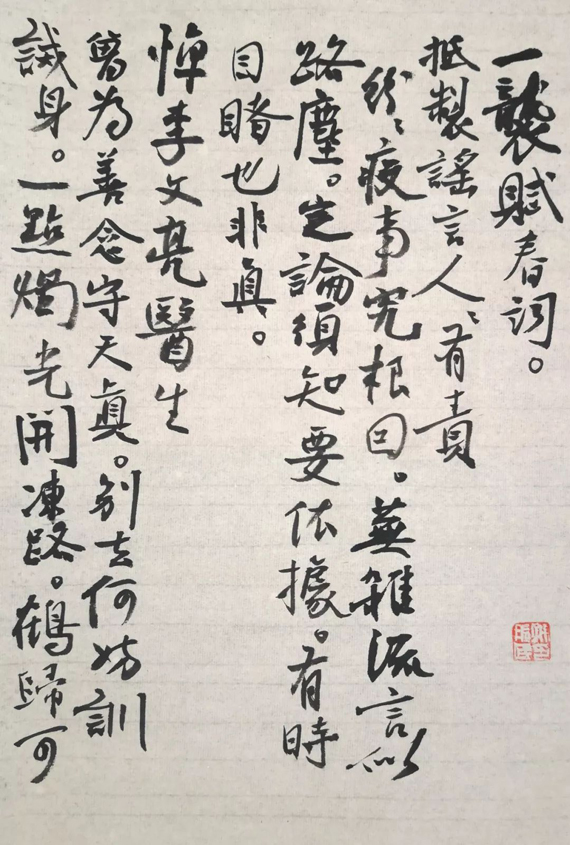 一襲賦春詞。
抵製謠言人〻有責
紛〻疫事究根囙。蕪雜流言似
路塵。定論須知要依據。有時
目睹也非眞。
悼李文亮醫生
曾為善念守天眞。別去何妨訓
誡身。一點燭光開凍路。鶴歸可